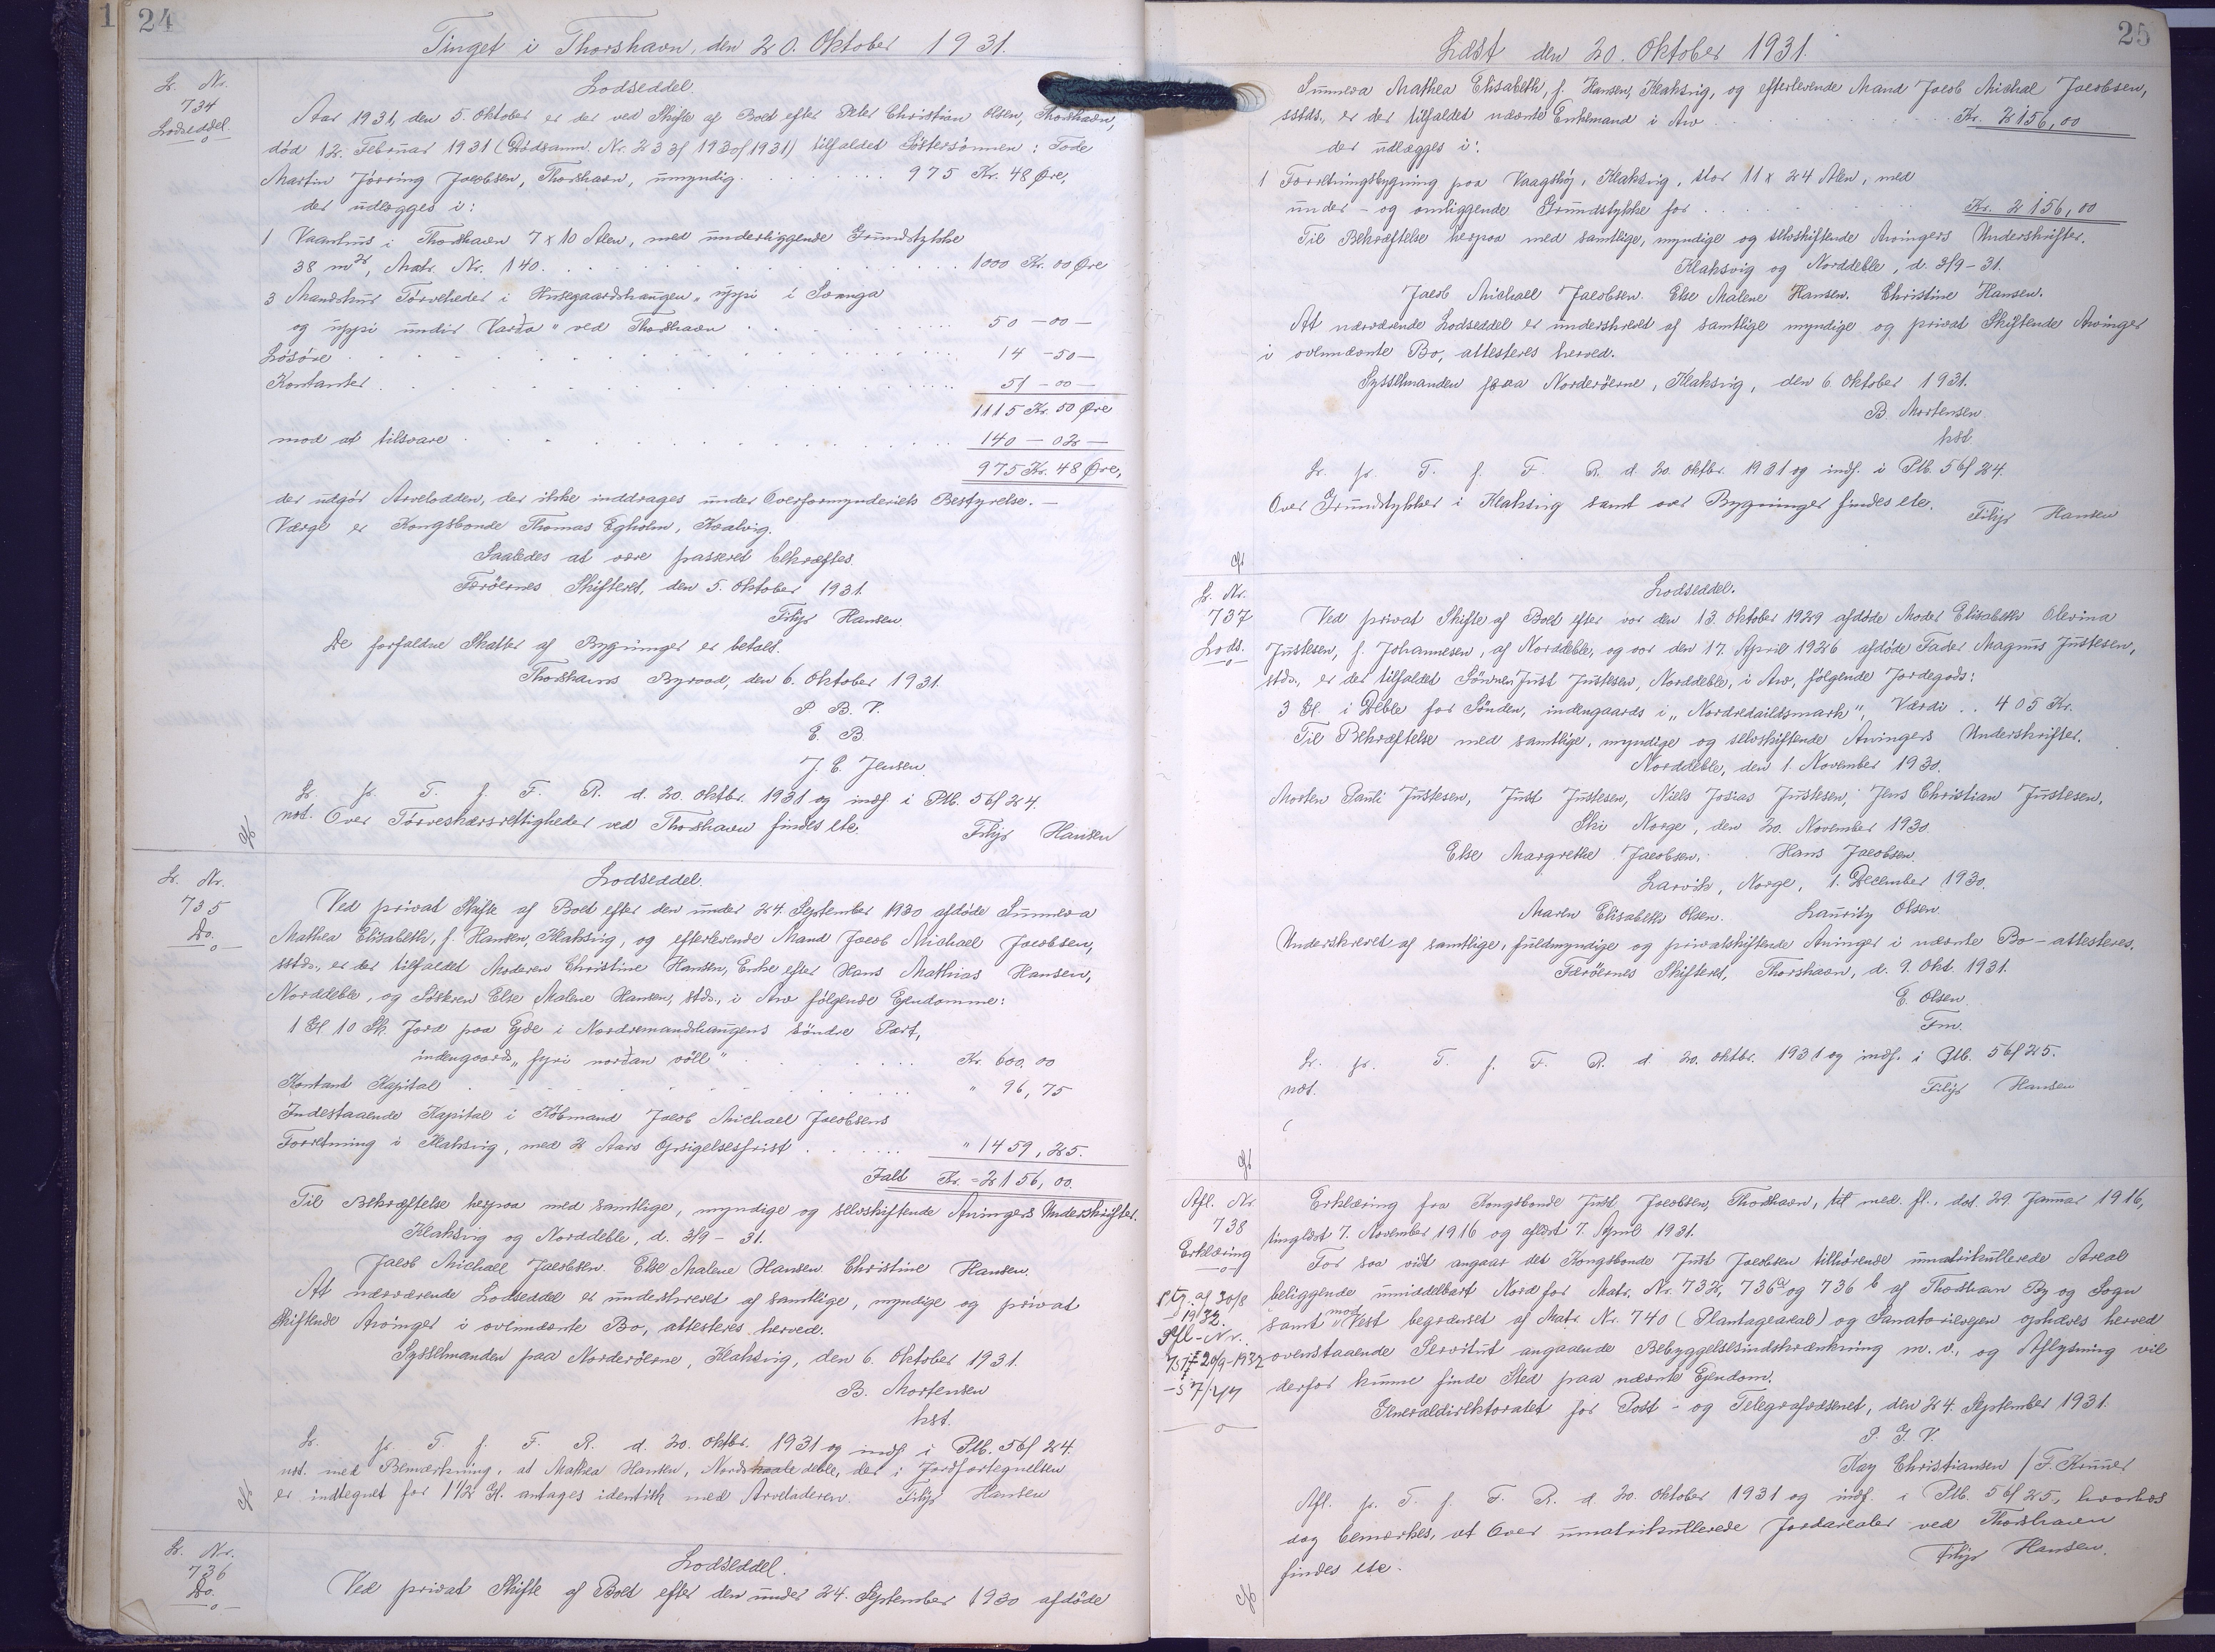 1
24
Tinget i Thorshavn, den 20. Oktober 1931.
L. Nr.
734
Lodseddel.
Lodseddel.
Aar 1931, den 5. Oktober er der ved Skifte af Boet efter Peter Christian Olsen, Thorshavn,
död 12. Februar 1931 (Dödsanm. Nr. 233/1930/1931) tilfaldet Söstersönnen: Tode
Martin Jörring Jacobsen, Thorshavn, umyndig . . . . . 975 Kr. 48 Øre,
der udlægges i:
1 Vaanhus i Thorshavn 7 x 10 Alen, med underliggende Grundstykke
38 m², Matr. Nr. 140. . . . . . . 1000 Kr. 00 Øre
3 Mandskur Törveheder i Husegaardshaugen „uppi í Svanga
og uppi undir Varda" ved Thorshavn . . . . 50 - 00 -
Lösöre . . . . . . 14 - 50 -
Kontanter . . . . . . 51 - 00 -
1115 Kr. 50 Øre
mod at tilsvare . . . . . . 140 - 02 -
975 Kr. 48 Øre,
der udgör Arvelodden, der ikke inddrages under Overformynderiets Bestyrelse. -
Værge er Kongsbonde Thomas Egholm, Koalvig.
Saaledes at være passeret bekræftes.
Færöernes Skifteret, den 5. Oktober 1931.
Filip Hansen
De forfaldne Skatter af Bygninger er betalt.
Thorshavns Byraad, den 6. Oktober 1931.
P. B. V.
E. B.
J. E. Jensen.
L. p. T. f. F. R. d. 20. Oktbr. 1931 og indf. i Ptb. 56/24.
not. Over Törveskærsrettigheder ved Thorshavn findes Ete.
Filip Hansen
L. Nr.
735
Do.
Lodseddel.
Ved privat Skifte af Boet efter den under 24. September 1930 afdöde Sunneva
Mathea Elisabeth, f. Hansen, Klaksvig, og efterlevende Mand Jacob Michael Jacobsen,
sstds., er der tilfaldet Moderen Christine Hansen, Enke efter Hans Mathias Hansen,
Norddeble, og Sösteren Else Malene Hansen, stds., i Arv følgende Ejendomme:
1 Gl 10 Sk. Jord paa Eyde i Nordremandshaugens söndre Part,
indengaards „fyri nordan völl" . . . . Kr. 600,00
Kontant Kapital . . . . . " 96,75
Indestaaende Kapital i Købmand Jacob Michael Jacobsens
Forretning i Klaksvig, med 2 Aars Opsigelsesfrist . . . . " 1459,25.
Ialt Kr. = 2156,00.
Til Bekræftelse herpaa med samtlige, myndige og selvskiftende Arvingers Underskrifter.
Klaksvig og Norddeble, d. 3/9 - 31.
Jacob Michael Jacobsen. Else Malene Hansen. Christine Hansen.
At nærværende Lodseddel er underskrevet af samtlige, myndige og privat
skiftende Arvinger i ovennævnte Bo, attesteres herved.
Sysselmanden paa Norderöerne, Klaksvig, den 6. Oktober 1931.
B. Mortensen
kst.
L. p. T. f. F. R. d. 20. Oktbr. 1931 og indf. i Ptb. 56/24.
not. med Bemærkning, at Mathea Hansen, Norddeble, der i Jordfortegnelsen
er indtegnet for 1 1/2 Gl. antages identisk med Arveladeren. Filip Hansen
L. Nr.
736
Do.
Lodseddel.
Ved privat Skifte af Boet efter den under 24. September 1930 afdöde
25
Læst den 20. Oktober 1931.
Sunneva Mathea Elisabeth, f. Hansen, Klaksvig, og efterlevende Mand Jacob Michal Jacobsen,
sstds., er der tilfaldet nævnte Enkemand i Arv . . . . Kr. 2156,00
der udlægges i:
1 Forretningsbygning paa Vaagshöj, Klaksvig, stor 11 x 24 Alen, med
under - og omliggende Grundstykke for . . . . Kr. 2156,00
Til Bekræftelse herpaa med samtlige, myndige og selvskiftende Arvingers Underskrifter.
Klaksvig og Norddeble, d. 3/9 - 31.
Jacob Michael Jacobsen. Else Malene Hansen. Christine Hansen.
At nærværende Lodseddel er underskrevet af samtlige myndige og privat Skiftende Arvinger
i ovennævnte Bo, attesteres herved.
Sysselmanden paa Norderöerne, Klaksvig, den 6 Oktober 1931.
B. Mortensen.
kst.
L. p. T. f. F. R. d. 20. Oktbr. 1931 og indf. i Ptb. 56/24.
Over Grundstykker i Klaksvig samt over Bygninger findes Ete.
Filip Hansen
L. Nr.
737
Lods.
Lodseddel.
Ved privat Skifte af Boet efter vor den 13. Oktober 1929 afdöde Moder Elisabeth Olevina
Justesen, f. Johannesen, af Norddeble, og vor den 17. April 1926 afdöde Fader Magnus Justesen,
stds., er der tilfaldet Sönnen Just Justesen, Norddeble, i Arv, følgende Jordegods:
3 Gl. i Deble for Sönden, indengaards i „Nordredaildsmark", Værdi . . 405 Kr.
Til Bekræftelse med samtlige, myndige og selvskiftende Arvingers Underskrifter.
Norddeble, den 1. November 1930.
Morten Pauli Justesen, Just Justesen, Niels Josias Justesen, Jens Christian Justesen.
Ski Norge, den 20. November 1930.
Else Margrethe Jacobsen. Hans Jacobsen.
Larvik, Norge, 1. December 1930.
Maren Elisabeth Olsen. Lauritz Olsen.
Underskrevet af samtlige, fuldmyndige og privatskiftende Arvinger i nævnte Bo - attesteres.
Færöernes Skifteret, Thorshavn, d. 9. Okt. 1931.
E. Olsen.
Fm.
L. p. T. f. F. R. d. 20. Oktbr. 1931 og indf. i Ptb. 56/25.
not.
Filip Hansen
Afl. Nr
738
Erklæring
Erklæring fra Kongsbonde Just Jacobsen, Thorshavn, til med. fl., dat. 29. Januar 1916,
tinglæst 7. November 1916 og aflæst 7. April 1931.
For saa vidt angaar det Kongsbonde Just Jacobsen tilhørende umatrikullerede Areal
beliggende umiddelbart Nord for Matr. Nr. 732, 736a og 736 b af Thorshavn By og Sogn
samt mod Vest begrænset af Matr. Nr. 740 (Plantageareal) og Sanatorievejen ophæves herved
ovenstaaende Servitut angaaende Bebyggelsesindskrænkning m. v., og Aflysning vil
derfor kunne finde Sted paa nævnte Ejendom.
af 30/8
1932.
Afl-Nr.
20/9-1932
Generaldirektoratet for Post - og Telegrafvæsenet, den 24. September 1931.
P. G. V.
Kay Christiansen / F. Krüner
Afl. p. T. f. F. R. d. 20. Oktober 1931 og indf. i Ptb. 56/25, hvorhos
dog bemærkes, at Over umatrikullerede Jordarealer ved Thorshavn
findes Ete.
Filip Hansen.